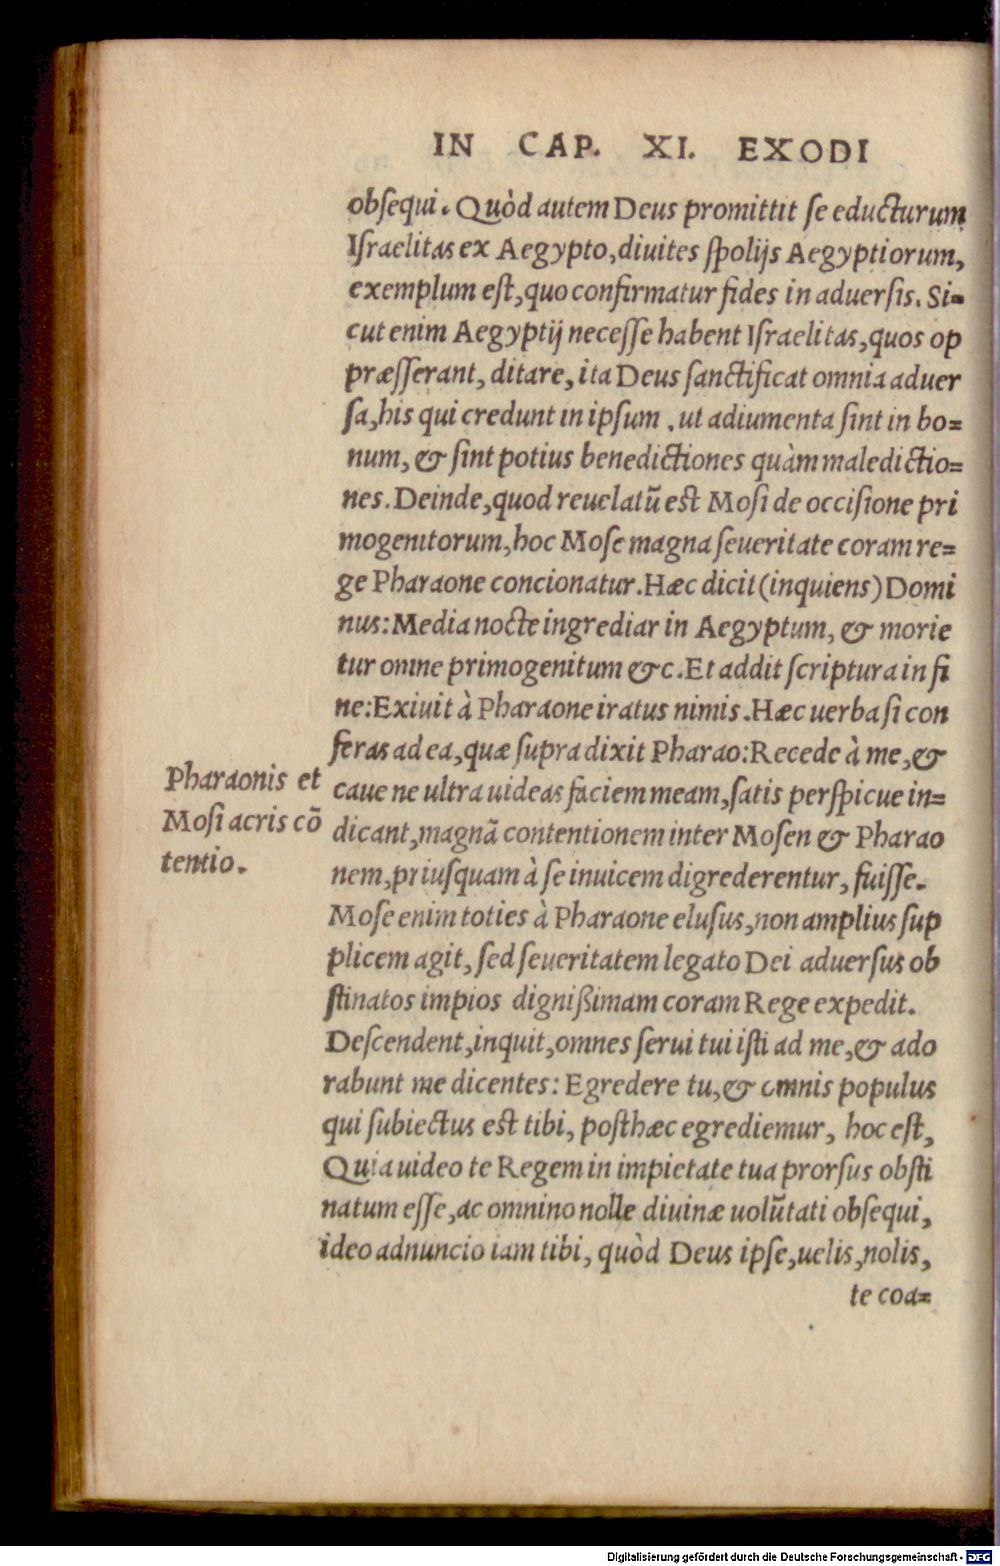 IN CAP. XI. EXODI
obſequi. Quòd autem Deus promittit ſe educturum
Iſraelitas ex Aegypto, diuites ſpolijs Aegyptiorum,
exemplum eſt, quo confirmatur fides in aduerſis. Si=
cut enim Aegyptij neceſſe habent Iſraelitas, quos op
præſſerant, ditare, ita Deus ſanctificat omnia aduer
ſa, his qui credunt in ipſum, ut adiumenta ſint in bo=
num, & ſint potius benedictiones quàm maledictio=
nes. Deinde, quod reuelatũ est Moſi de occiſione pri
mogenitorum, hoc Moſe magna ſeueritate coram re=
ge Pharaone concionatur. Hæc dicit (inquiens) Domi
nus: Media nocte ingrediar in Aegyptum, & morie
tur omne primogenitum &c. Et addit ſcriptura in fi
ne: Exiuit à Pharaone iratus nimis. Hæc uerba ſi con
feras ad ea, quæ ſupra dixit Pharao: Recede à me, &
Pharaonis et
Moſi acris cõ
tentio.
caue ne ultra uideas faciem meam, ſatis perſpicue in=
dicant, magnã contentionem inter Moſen & Pharao
nem, priuſquam à ſe inuicem digrederentur, fuiſſe.
Moſe enim toties à Pharaone eluſus, non amplius ſup
plicem agit, ſed ſeueritatem legato Dei aduerſus ob
ſtinatos impios digniſſimam coram Rege expedit.
Deſcendent, inquit, omnes ſerui tui iſti ad me, & ado
rabunt me dicentes: Egredere tu, & omnis populus
qui ſubiectus est tibi, poſthæc egrediemur, hoc eſt,
Quia uideo te Regem in impietate tua prorſus obſti
natum eſſe, ac omnino nolle diuinæ uolũtati obſequi,
ideo adnuncio iam tibi, quòd Deus ipſe, uelis, nolis,
te coa=
Digitalisierung gefördert durch die Deutsche Forschungsgemeinschaft - DFG